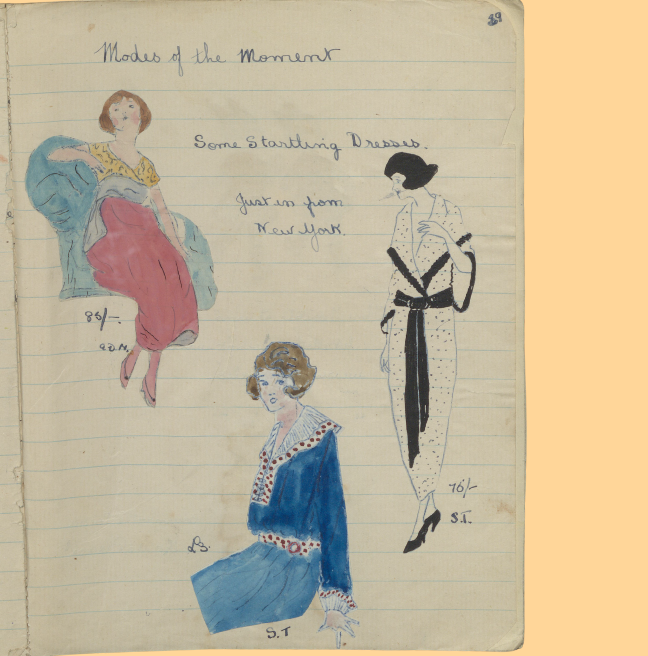 39
Modes of the Moment
Some Startling Dresses.
Just in from
New York.
85/-.
76/-
S.T.
S.T